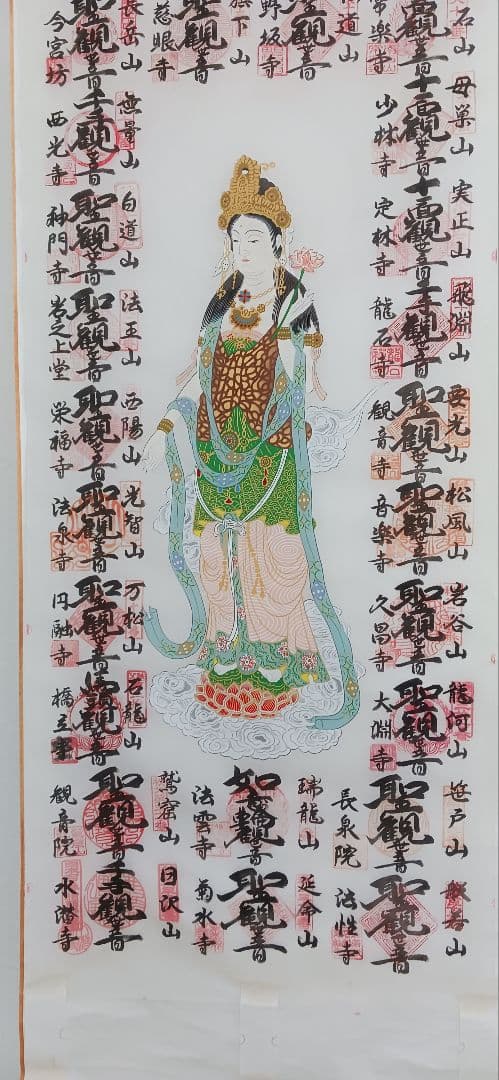 石山
観世音
常楽寺
道山
聖観世音
野坂寺
旗下山
慈眼寺
長岳山
聖観世音
今宮坊
母巣山
十一面観世音
少林寺
無量山
千手観世音
西光寺
実正山
十一面観世音
定林寺
白道山
聖観世音
神門寺
飛淵山
千手観世音
龍石寺
法王山
聖観世音
岩之上堂
要光山
聖観世音
観音寺
西陽山
聖観世音
栄福寺
松風山
聖観世音
音楽寺
光智山
聖観世音
法泉寺
岩谷山
聖観世音
久昌寺
万松山
聖観世音
円融寺
龍河山
聖観世音
大淵寺
石龍山
馬頭観世音
橋立堂
笹戸山
聖観世音
長泉院
瑞龍山
如意輪観世音
法雲寺
鷲窟山
聖観世音
観音院
般若山
聖観世音
法性寺
延命山
聖観世音
菊水寺
日沢山
千手観世音
水潜寺